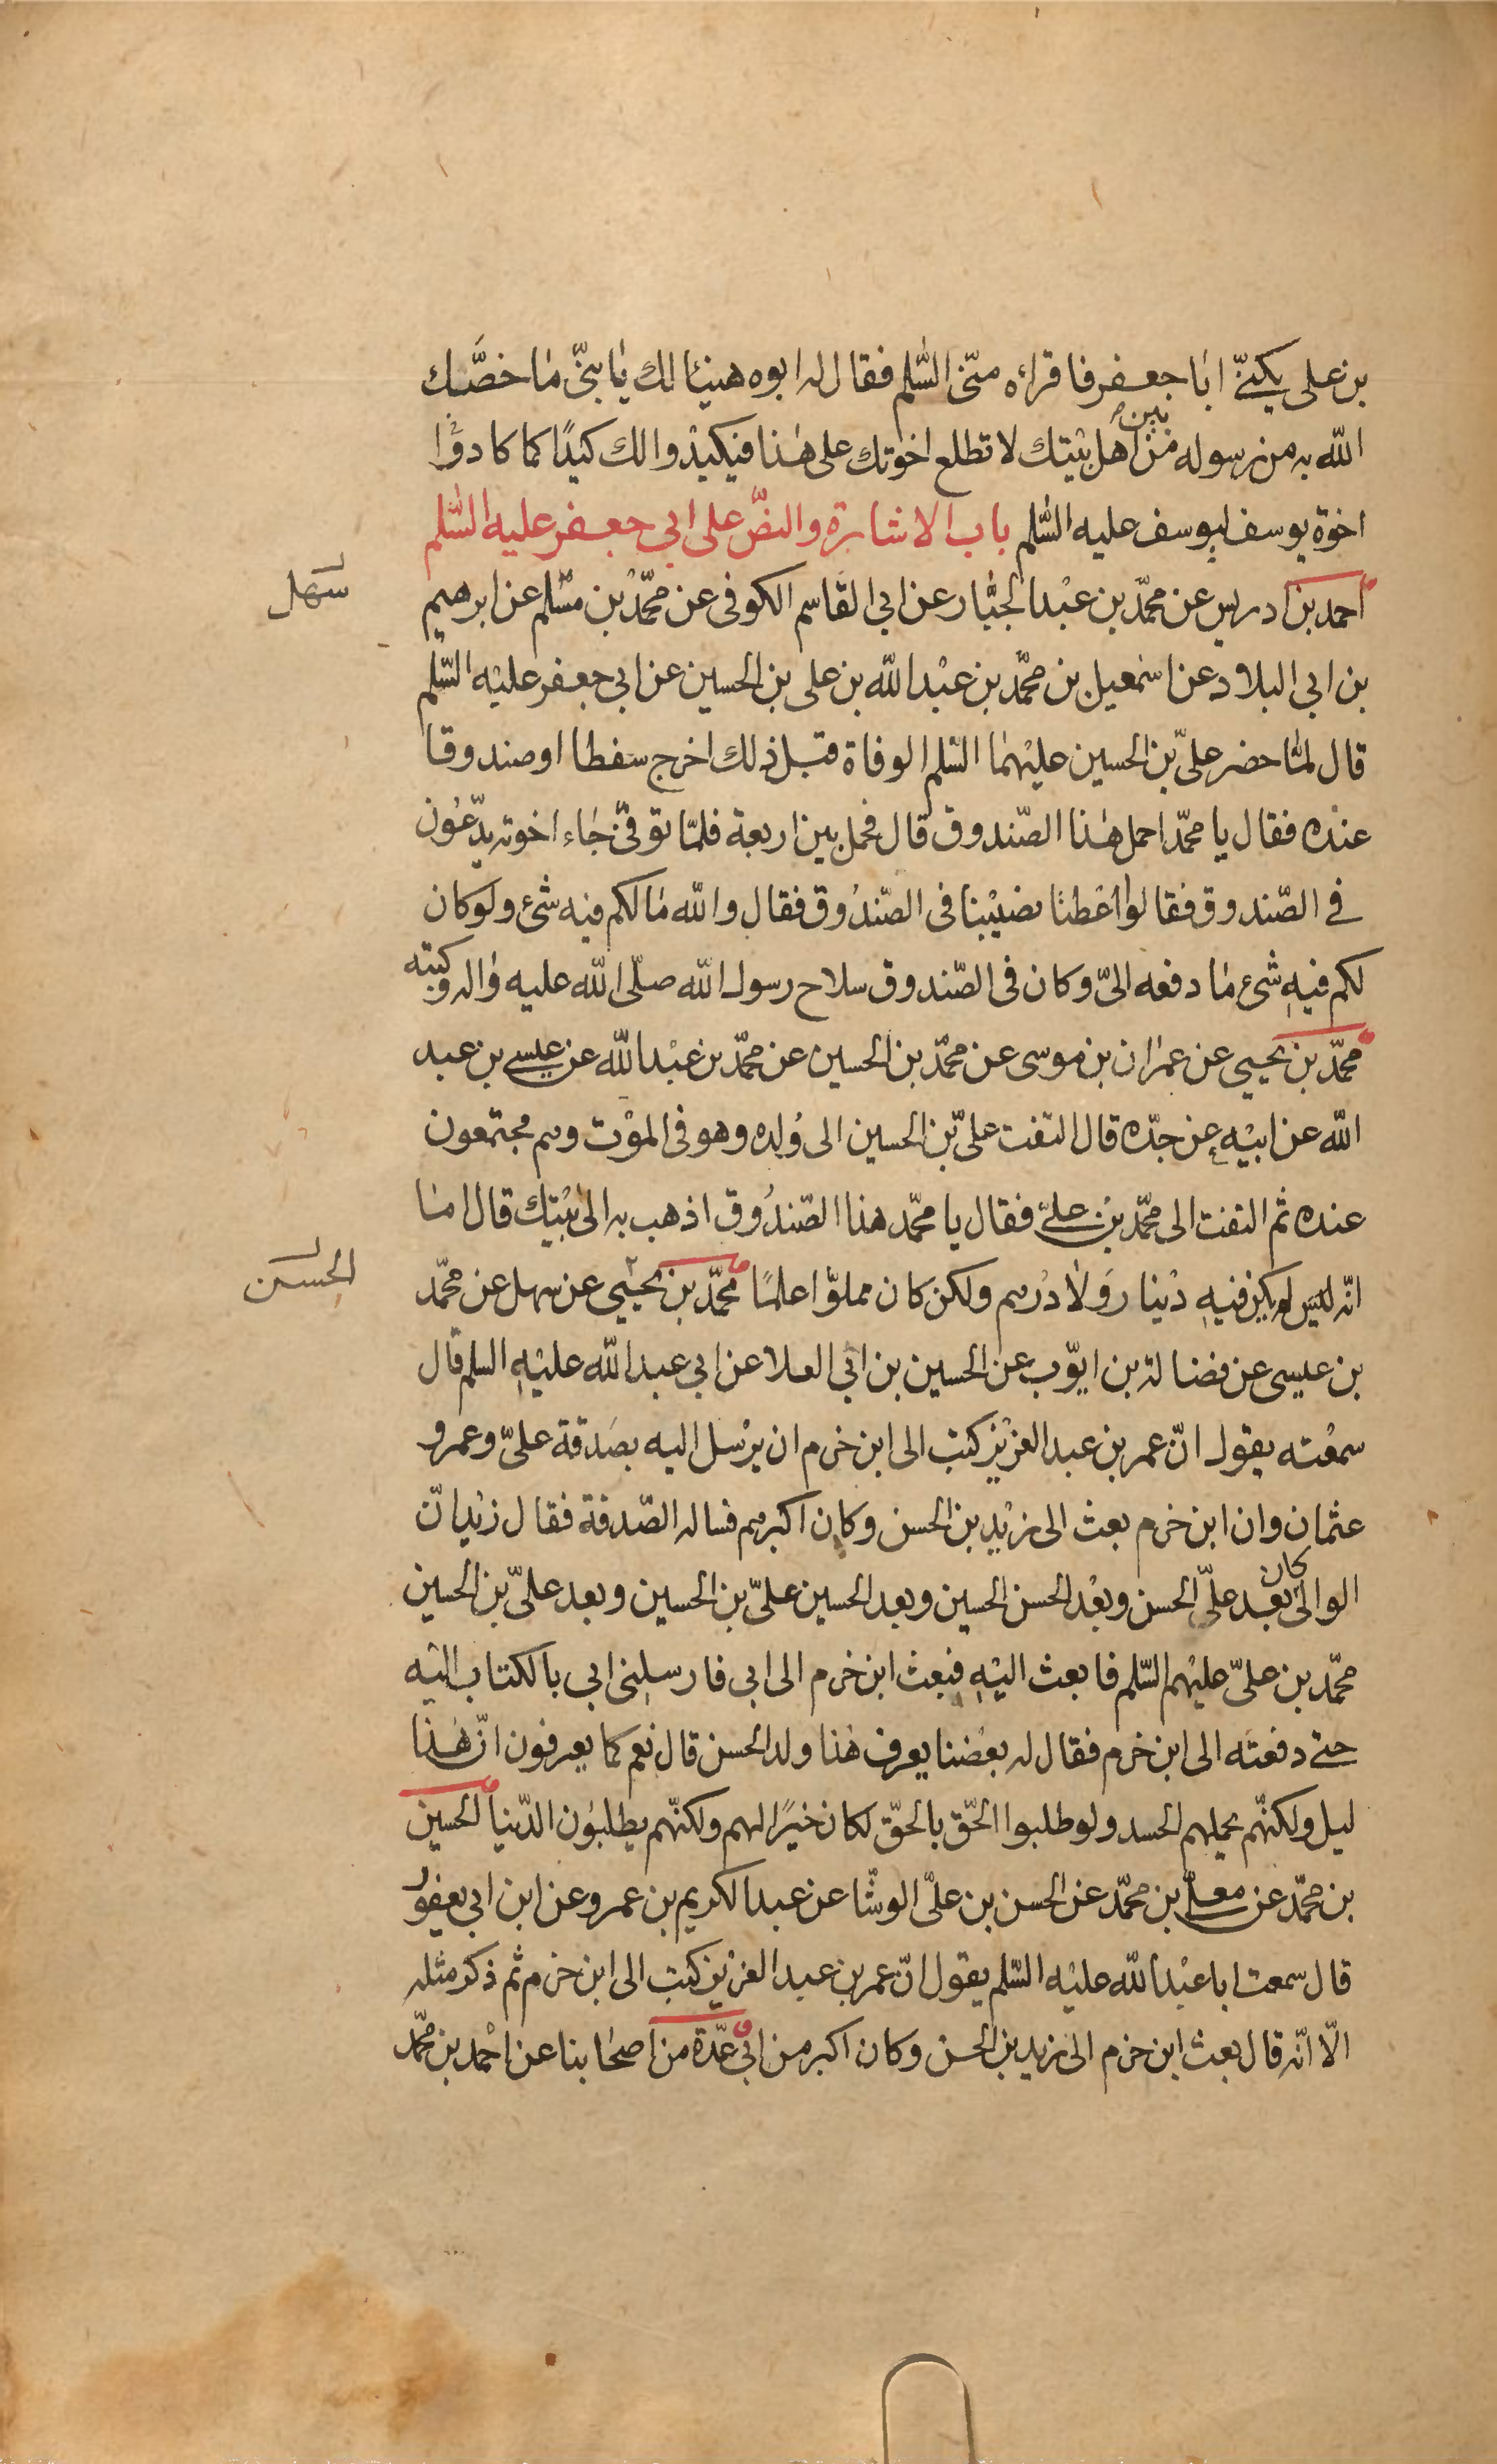 بن على يكنىّ ابا جعفر فاقراءه منّى السّلم فقال له ابوه هنيئا لك يا بنىّ ما خصّك
الله به من رسوله من بين اهل بيتك لا تطلع اخوتك على هذا فيكيدوا لك كيدًا كما كادوا
اخوة يوسف ليوسف عليه السّلم باب الاشارة والنصّ على ابى جعفر عليه السّلم
احمد بن ادريس عن محمّد بن عبد الجبّار عن ابى القاسم الكوفى عن محمّد بن مسلم عن ابرهيم
سهل
بن ابى البلاد عن اسمعيل بن محمّد بن عبد الله بن على بن الحسين عن ابى جعفر عليه السّلم
قال لمّا حضر علىّ بن الحسين عليهما السّلم الوفاة قبل ذلك اخرج سفطا او صندوقا
عنده فقال يا محمّد احمل هذا الصّندوق قال فحمل بين اربعة فلمّا توفّى جاء اخوته يدّعون
فى الصّندوق فقالوا اعطنا نصيبنا فى الصّندوق فقال والله ما لكم فيه شئ ولو كان
لكم فيه شئ ما دفعه الىّ وكان فى الصّندوق سلاح رسول الله صلّى الله عليه واله وكتبه
محمّد بن يحيى عن عمران بن موسى عن محمّد بن الحسين عن محمّد بن عبد الله عن عيسى بن عبد
الله عن ابيه عن جدّه قال التفت علىّ بن الحسين الى ولده وهو فى الموت وهم مجتمعون
عنده ثم التفت الى محمّد بن علىّ فقال يا محمّد هذا الصّندوق اذهب به الى بيتك قال اما
انّه ليس لم يكن فيه دينار ولا درهم ولكن كان مملوّا علمًا محمّد بن يحيى عن سهل عن محمّد
الحسن
بن عيسى عن فضالة بن ايّوب عن الحسين بن ابى العلا عن ابى عبد الله عليه السلم قال
سمعته يقول انّ عمر بن عبد العزيز كتب الى ابن خرم ان يرسل اليه بصدقة علىّ وعمر و
عثمان وان ابن خرم بعث الى زيد بن الحسن وكان اكبرهم فساله الصّدقة فقال زيد انّ
الوالى كان بعد علىّ الحسن وبعد الحسن الحسين وبعد الحسين علىّ بن الحسين وبعد علىّ بن الحسين
محمّد بن علىّ عليهم السّلم فابعث اليه فبعث ابن خرم الى ابى فارسلنى ابى بالكتاب اليه
حتى دفعته الى ابن خرم فقال له بعضنا يعرف هذا ولد الحسن قال نعم كما يعرفون انّ هذا
ليل ولكنّهم يحملهم الحسد ولو طلبوا الحّق بالحّق لكان خيرًا لهم ولكنّهم يطلبون الدّنيا الحسين
بن محمّد عن معلّى بن محمّد عن الحسن بن علىّ الوشّا عن عبد الكريم بن عمرو عن ابن ابى يعفور
قال سمعت ابا عبد الله عليه السّلم يقول انّ عمر بن عبد العزيز كتب الى ابن خرم ثم ذكر مثله
الّا انّه قال بعث ابن خرم الى زيد بن الحسن وكان اكبر من ابى عدّة من اصحابنا عن احمد بن محمّد